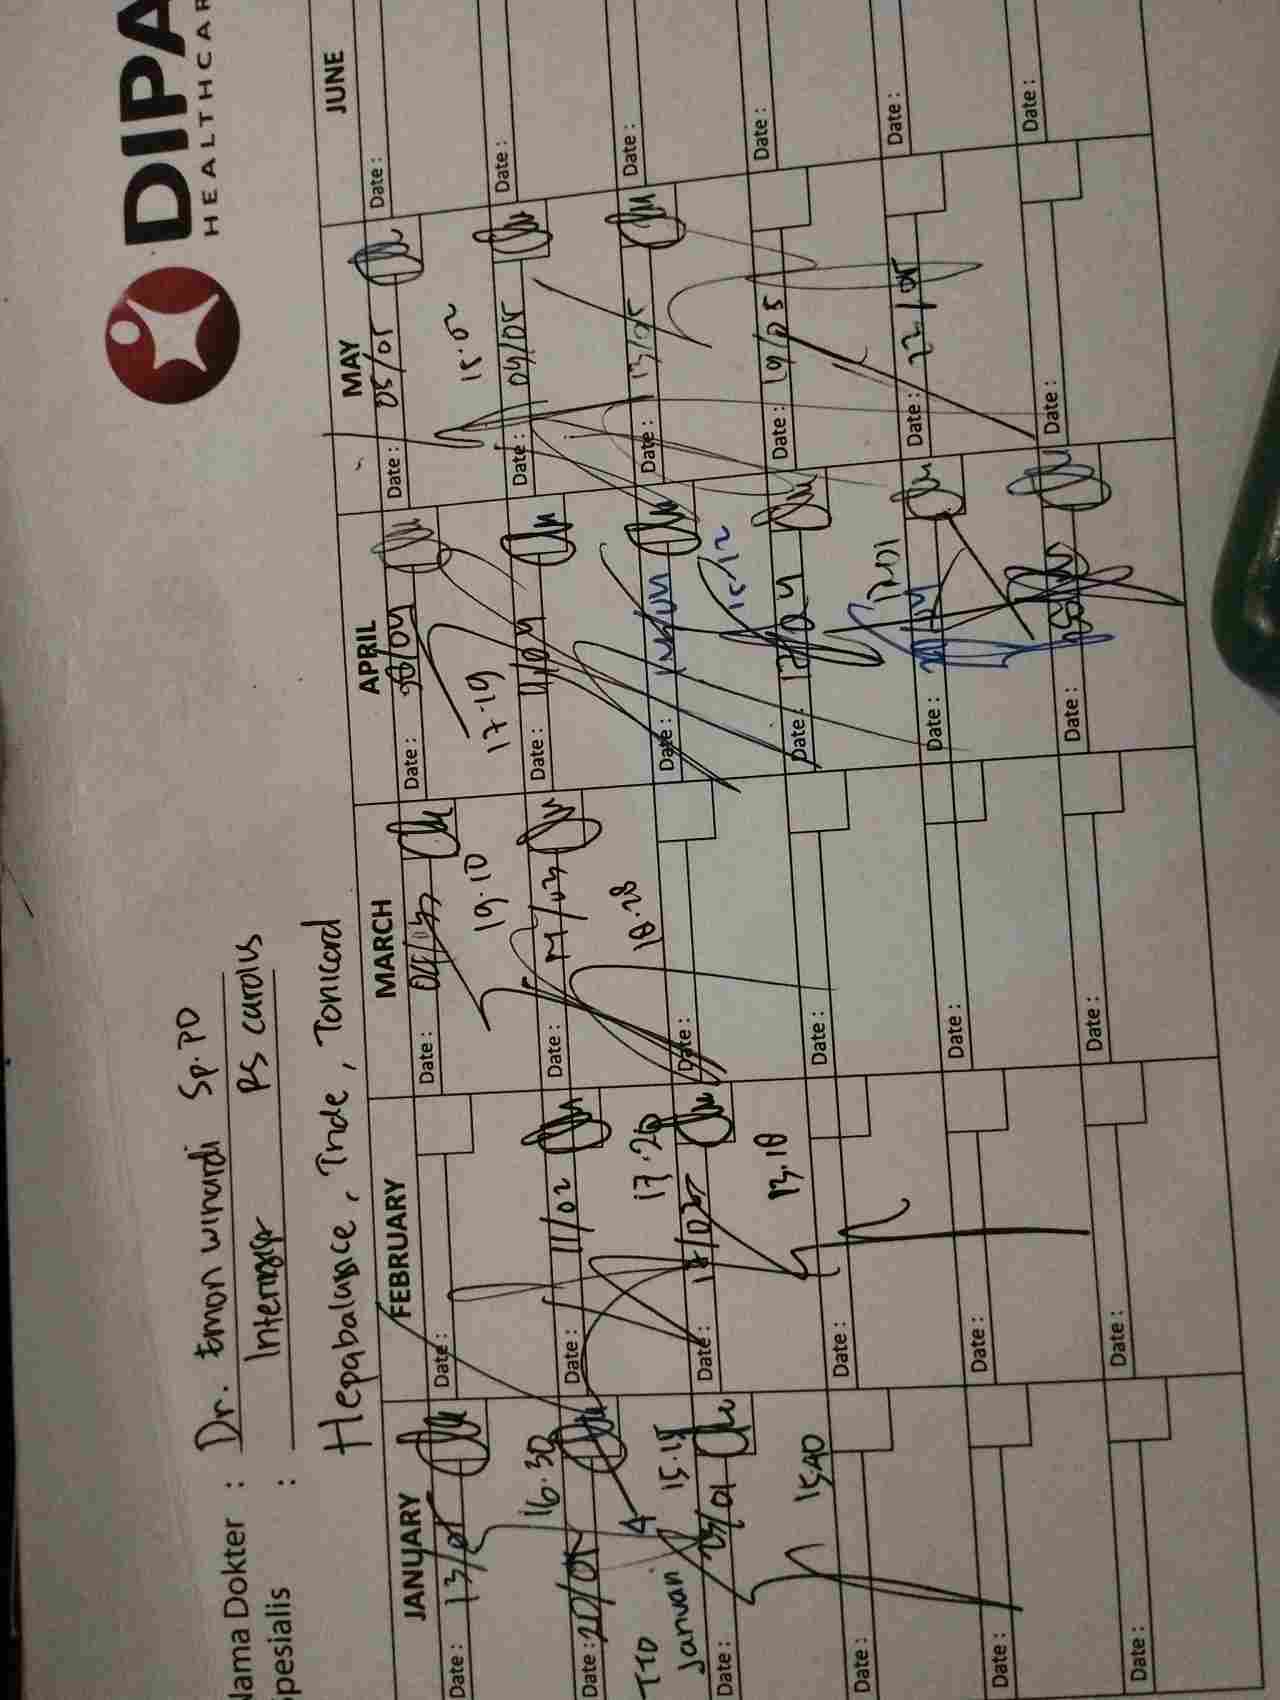 DIPA
HEALTHCAR
Nama Dokter : Dr. Emon Winardi Sp.PD
Spesialis : Internist RS Carolus
Hepabalance, Tride, Tonicard
JANUARY FEBRUARY MARCH APRIL MAY JUNE
Date : 13/01 Date : Date : 04/03 Date : Date : 05/05 Date :
16.30 19.10 17.19 15.02
Date : 20/01 Date : 11/02 Date : 11/03 Date : 11/04 Date : 09/05 Date :
TTD Januari 15.15 17.20 18.28 15.12
Date : 23/01 Date : 18/02 Date : Date : Date : 13/05 Date :
15.40 13.18
Date : Date : Date : Date : 17/04 Date : 19/05 Date :
Date : Date : Date : Date : Date : 22/05 Date :
Date : Date : Date : Date : Date : Date :